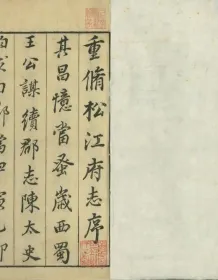 重脩松江府志序
其昌憶當蚤歲西蜀
王公謀續郡志陳太史